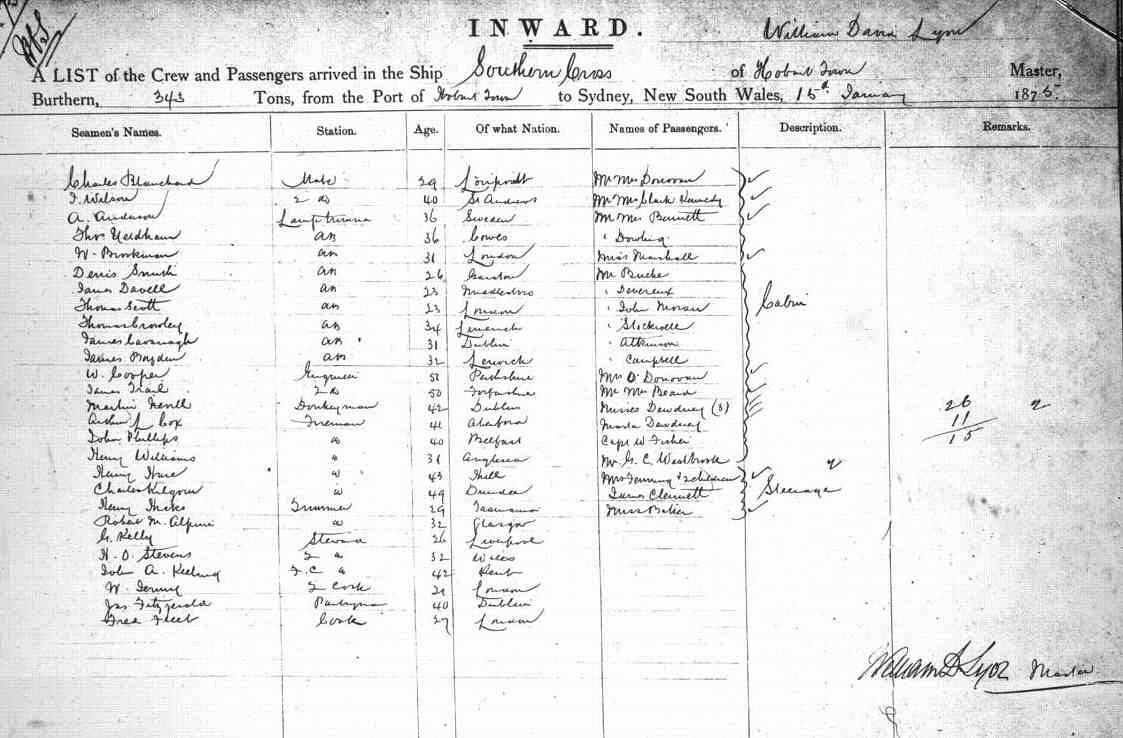 INWARD.
William David Lyon
A LIST of the Crew and Passengers arrived in the Ship Southern Cross of Hobart Town Master,
Burthern, 343 Tons, from the Port of Hobart Town to Sydney, New South Wales, 15th January 1875
Seamen's Names. Station. Age. Of what Nation. Names of Passengers. Description. Remarks.
Charles Blanchard Mate 29 Mr Mrs Donovan
J. Wilson 2 do 40 St Andrews Mr Mrs Clark Kennedy
A. Anderson Lamptrimmer 36 Sweden Mr Mrs Bennett
Thos Needham AB 36 Cowes " Dowling
W. Brookman AB 31 London Miss Marshall
Denis Smith AB 26 Mr Burke
James Davell AB 23 Middlesbro " Devereux
Thomas Scott AB 23 London " John Moran Cabin
Thomas Crowley AB 34 Limerick " Stockwell
James Cavanagh AB 31 Dublin " Atkinson
James Bogden AB 32 Lerwick " Campbell
W. Cooper Engineer 51 Perthshire Mrs O'Donovan
James Trail 2 do 50 Forfarshire Mr Mrs Beard
Martin Nevill Donkeyman 42 Dublin Misses Dewdney (3) 26
Arthur J Cox Fireman 41 Master Dewdney 11
John Phillips " 40 Belfast Capt W Fisher 15
Henry Williams " 31 Anglesea Mr G. C. Westbrook
Henry Hare " 43 Hull Mrs Fenning & 2 children
Charles Kilgour " 49 Dundee James Clennett Steerage
Henry Hicks Trimmer 29 Tasmania Miss Baker
Robert McAlpine " 32 Glasgow
G. Kelly Steward 26 Liverpool
H. O. Stevens 2 " 32 Wilts
John A. Keeling F.C. " 42 Kent
W. 2 Cook 21 London
Jas Fitzgerald Pantryman 40 Dublin
Fred Fleet Cook 27 London
William D Lyon Master